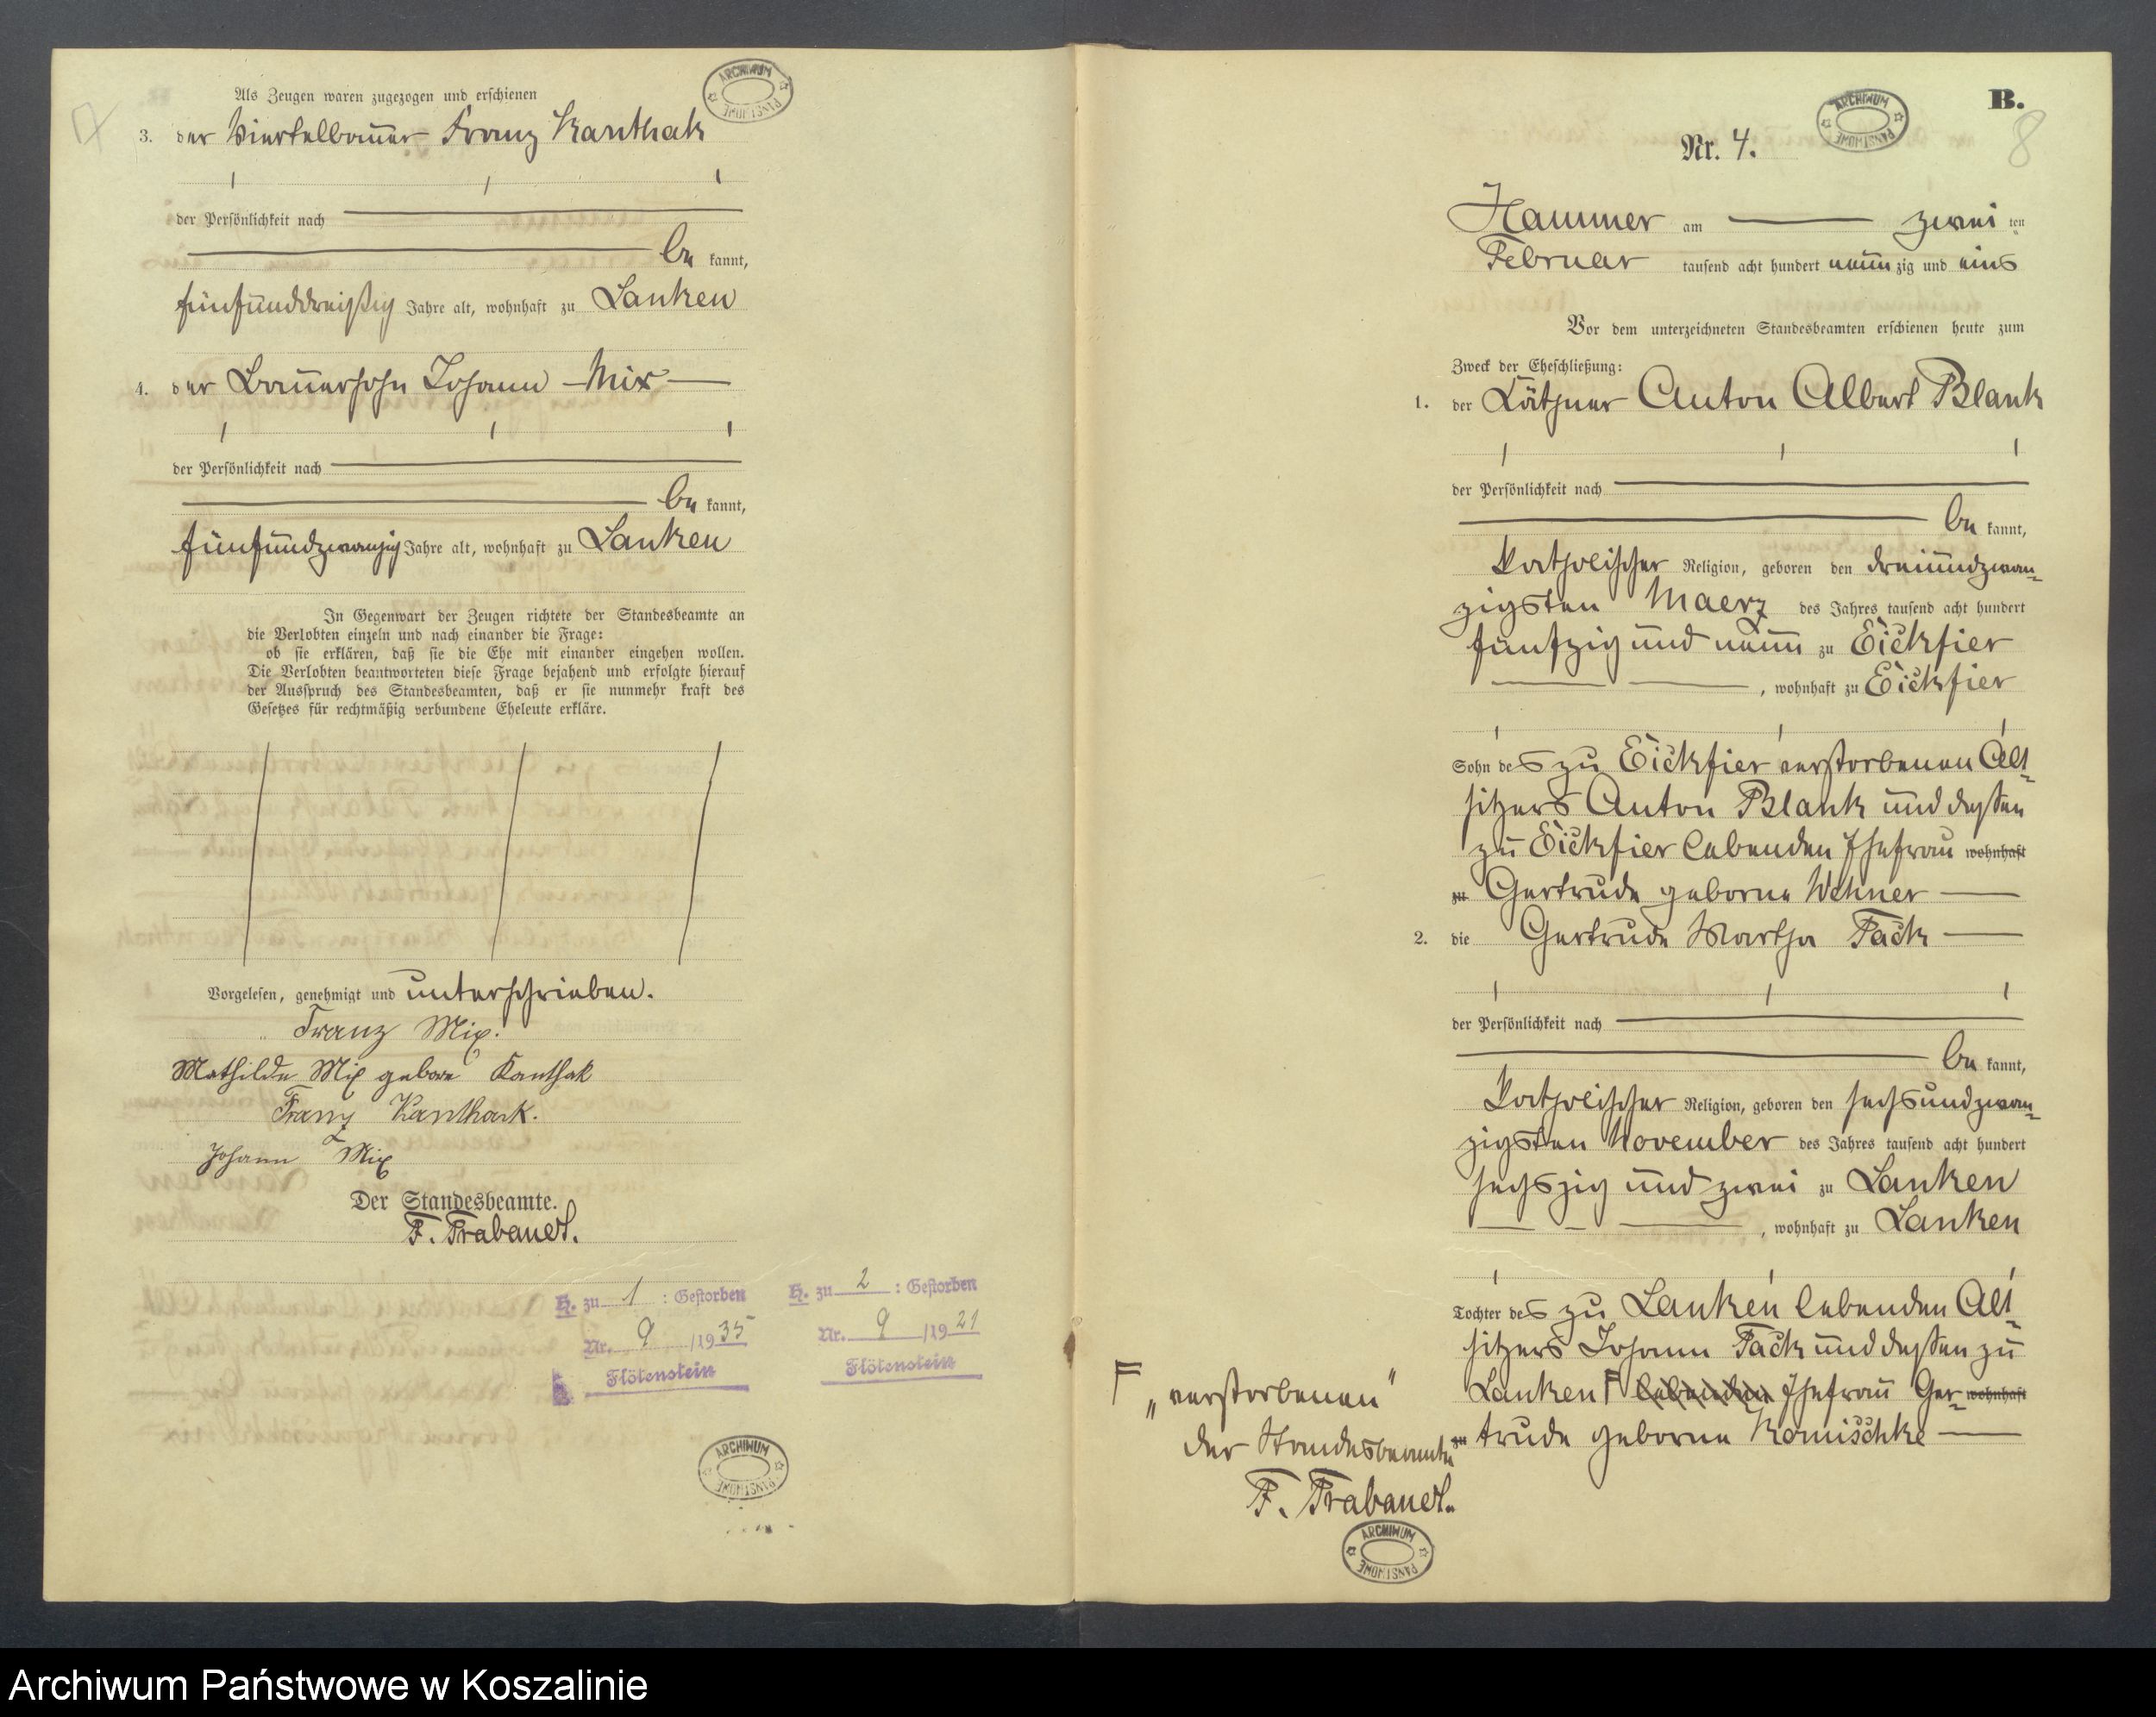 Als Zeugen waren zugezogen und erschienen
3. der Viertelbauer Franz Kanthak
der Persönlichkeit nach
be kannt,
fünfunddreißig Jahre alt, wohnhaft zu Lanken
4. der Bauersohn Johann Mix
der Persönlichkeit nach
be kannt,
fünfundzwanzig Jahre alt, wohnhaft zu Lanken
In Gegenwart der Zeugen richtete der Standesbeamte an
die Verlobten einzeln und nach einander die Frage:
ob sie erklären, daß sie die Ehe mit einander eingehen wollen.
Die Verlobten beantworteten diese Frage bejahend und erfolgte hierauf
der Ausspruch des Standesbeamten, daß er sie nunmehr kraft des
Gesetzes für rechtmäßig verbundene Eheleute erkläre.
Vorgelesen, genehmigt und unterschrieben.
Franz Mix.
Mathilde Mix gebore Kanthak
Franz Kanthack.
Johann Mix
Der Standesbeamte.
F. Trabandt.
H. zu 1 : Gestorben
Nr. 9 /1935
Flötenstein
H. zu 2 : Gestorben
Nr. 9 /1921
Flötenstein
ARCHIWUM PAŃSTWOWE
B.
8
Nr. 4.
Hammer am zwei ten
Februar tausend acht hundert neun zig und eins
Vor dem unterzeichneten Standesbeamten erschienen heute zum
Zweck der Eheschließung:
1. der Käthner Anton Albert Blank
der Persönlichkeit nach
be kannt,
katholischer Religion, geboren den dreiundzwan-
zigsten Maerz des Jahres tausend acht hundert
fünfzig und neun zu Eickfier
, wohnhaft zu Eickfier
Sohn des zu Eickfier verstorbenen Alt-
sitzers Anton Blank und dessen
zu Eickfier lebenden Ehefrau wohnhaft
zu Gertrude geborne Wehner
2. die Gertrude Martha Tack
der Persönlichkeit nach
be kannt,
katholischer Religion, geboren den sechsundzwan-
zigsten November des Jahres tausend acht hundert
sechszig und zwei zu Lanken
, wohnhaft zu Lanken
Tochter des zu Lanken lebenden Alt-
sitzers Johann Tack und dessen zu
Lanken F lebenden Ehefrau Ger- wohnhaft
zu trude geborne Komischke
F „verstorbenen"
der Standesbeamte
F. Trabandt.
ARCHIWUM PAŃSTWOWE
Archiwum Państwowe w Koszalinie